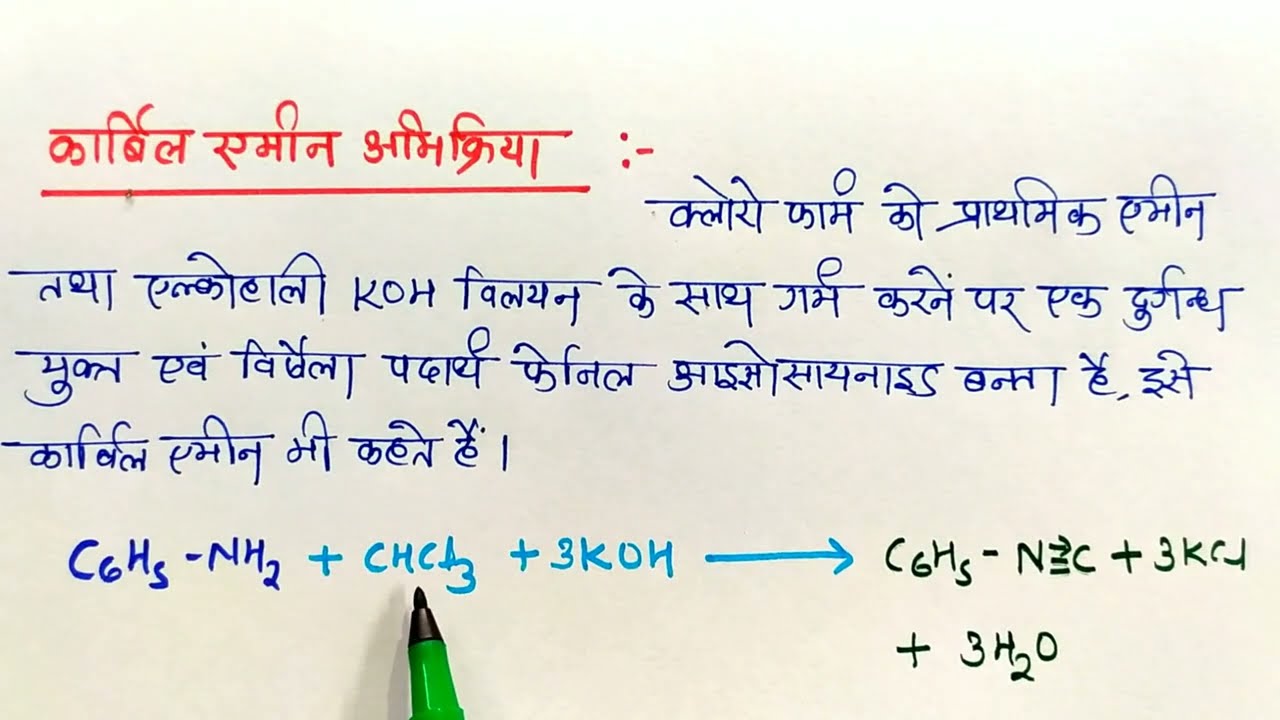 कार्बिल एमीन अभिक्रिया :-
क्लोरो फार्म को प्राथमिक एमीन
तथा एल्कोहाली KOH विलयन के साथ गर्म करनें पर एक दुर्गन्ध
युक्त एवं विषैला पदार्थ फेनिल आइसोसायनाइड बनता है, इसे
कार्बिल एमीन भी कहते हैं।
C6H5-NH2 + CHCl3 + 3KOH ⟶ C6H5-N≡C + 3KCl
+ 3H2O